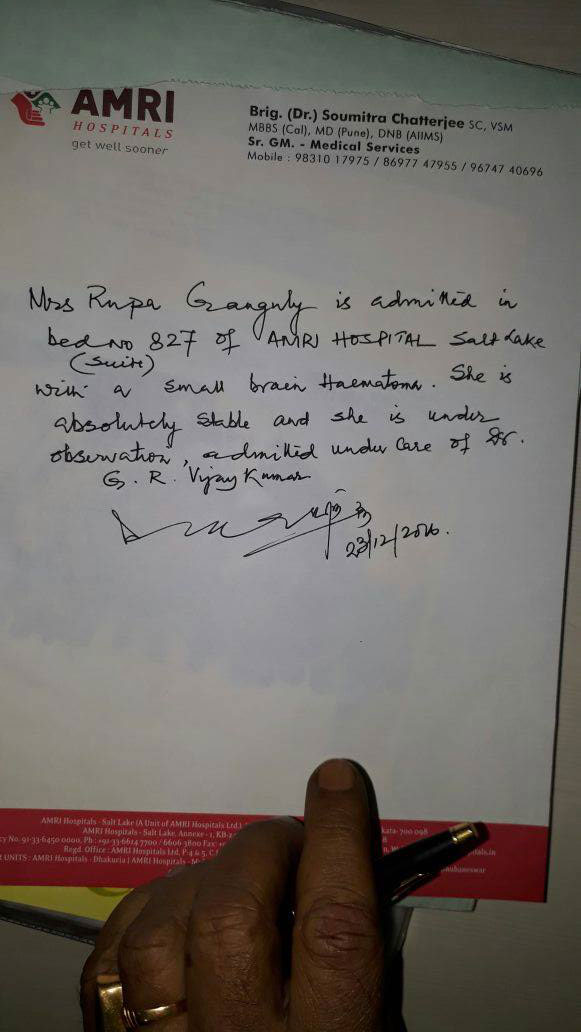 AMRI
HOSPITALS
get well sooner
Brig. (Dr.) Soumitra Chatterjee SC, VSM
MBBS (Cal), MD (Pune), DNB (AIIMS)
Sr. GM. - Medical Services
Mobile : 98310 17975 / 86977 47955 / 96747 40696
Mrs Rupa Ganguly is admitted in
bed no 827 of AMRI HOSPITAL Salt Lake
(Suite)
with a small brain Haematoma. She is
absolutely stable and she is under
observation, admitted under care of Dr.
G. R. Vijay Kumar
23/12/2016.
AMRI Hospitals - Salt Lake (A Unit of AMRI Hospitals Ltd.), kata- 700 098
AMRI Hospitals - Salt Lake, Annexe - 1, KB-
cy No. 91-33-6450 0000, Ph.: +91-33-6614 7700 / 6606 3800 Fax:
Regd. Office : AMRI Hospitals Ltd. P-4 & 5, C itals.in
UNITS : AMRI Hospitals - Dhakuria | AMRI Hospitals - hubaneswar